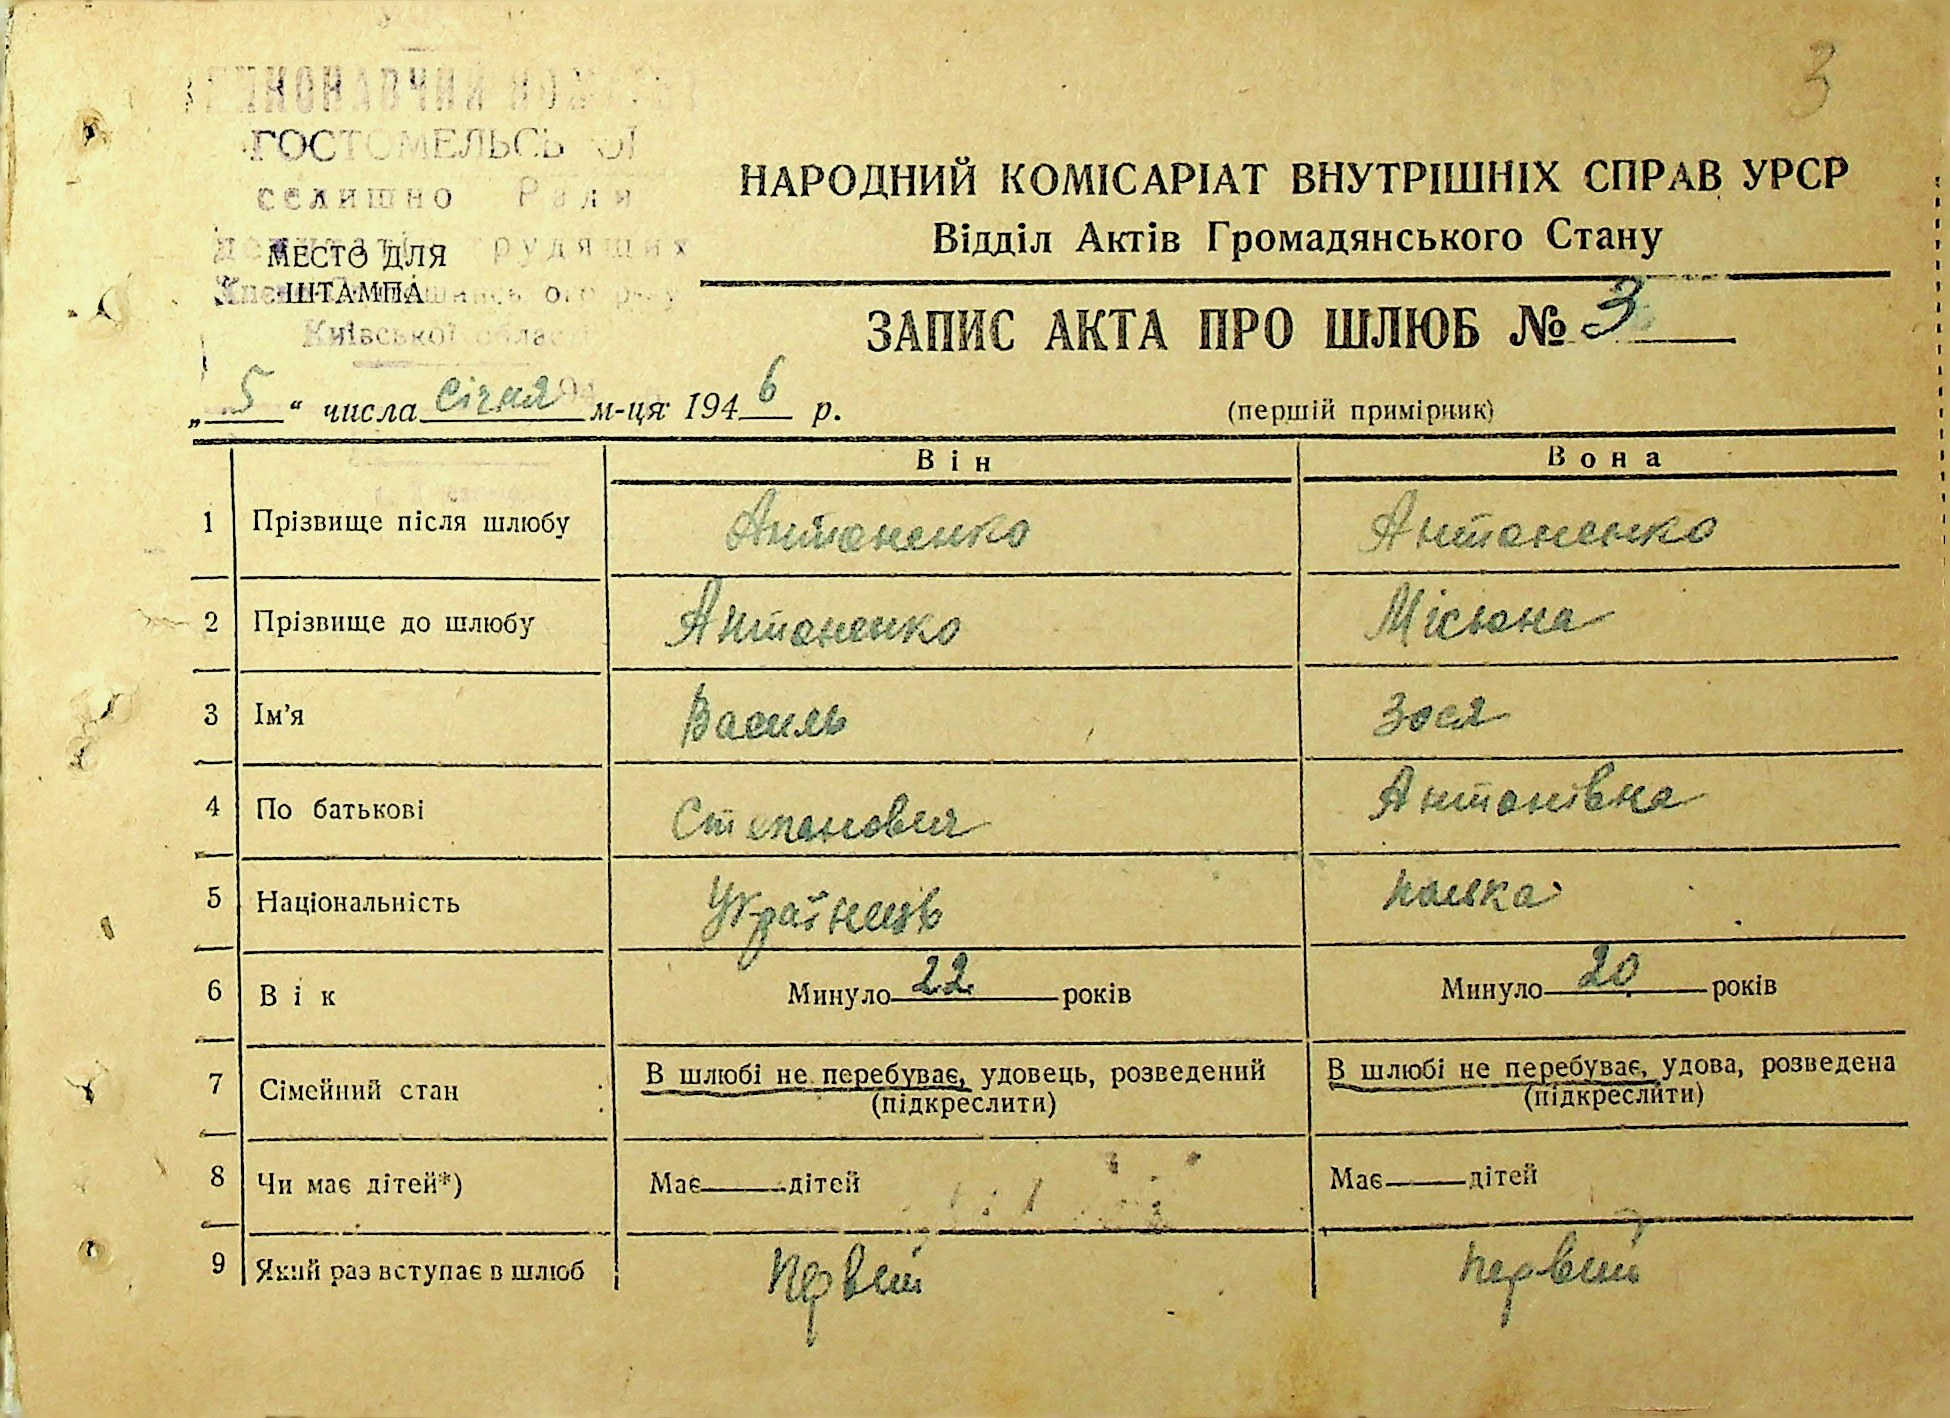 3
ГОСТОМЕЛЬСЬКОЇ
селищно Ради
трудящих
МЕСТО ДЛЯ
ШТАМПА
Київської області
НАРОДНИЙ КОМІСАРІАТ ВНУТРІШНІХ СПРАВ УРСР
Відділ Актів Громадянського Стану
ЗАПИС АКТА ПРО ШЛЮБ № 3
„5“ числа січня м-ця 1946 р.
(першій примірник)
Він Вона
1 Прізвище після шлюбу Антоненко Антоненко
2 Прізвище до шлюбу Антоненко Місюна
3 Ім'я Василь Зося
4 По батькові Степанович Антонівна
5 Національність Українець полька
6 Вік Минуло 22 років Минуло 20 років
7 Сімейний стан В шлюбі не перебуває, удовець, розведений В шлюбі не перебуває, удова, розведена
(підкреслити) (підкреслити)
8 Чи має дітей*) Має — дітей Має — дітей
9 Який раз вступає в шлюб первий первий